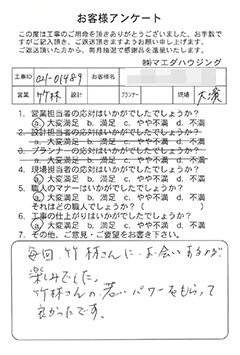 お客様アンケート
この度は工事のご用命を頂きありがとうございました。お手数で
すがご記入頂き、ご返送頂きますようお願い申し上げます。
ご返送頂いた方から、毎月抽選で感謝品を進呈いたします。
㈱マエダハウジング
工事ID 021-01489 お客様名
営業 竹林 設計 プランナー 現場 大濱
1. 営業担当者の応対はいかがでしたでしょうか?
a) 大変満足 b. 満足 c. やや不満 d. 不満
2. 設計担当者の応対はいかがでしたでしょうか?
a. 大変満足 b. 満足 c. やや不満 d. 不満
3. プランナーの応対はいかがでしたでしょうか?
a. 大変満足 b. 満足 c. やや不満 d. 不満
4. 現場担当者の応対はいかがでしたでしょうか?
a) 大変満足 b. 満足 c. やや不満 d. 不満
5. 職人のマナーはいかがでしたでしょうか?
a) 大変満足 b. 満足 c. やや不満 d. 不満
それはどの職人でしょうか?( )
6. 工事の仕上がりはいかがでしたでしょうか?
a) 大変満足 b. 満足 c. やや不満 d. 不満
7. その他、ご意見・ご要望をお書き下さい。
毎回、竹林さんにお会いするのが
楽しみでした。
竹林さんの若いパワーをもらって
良かったです。